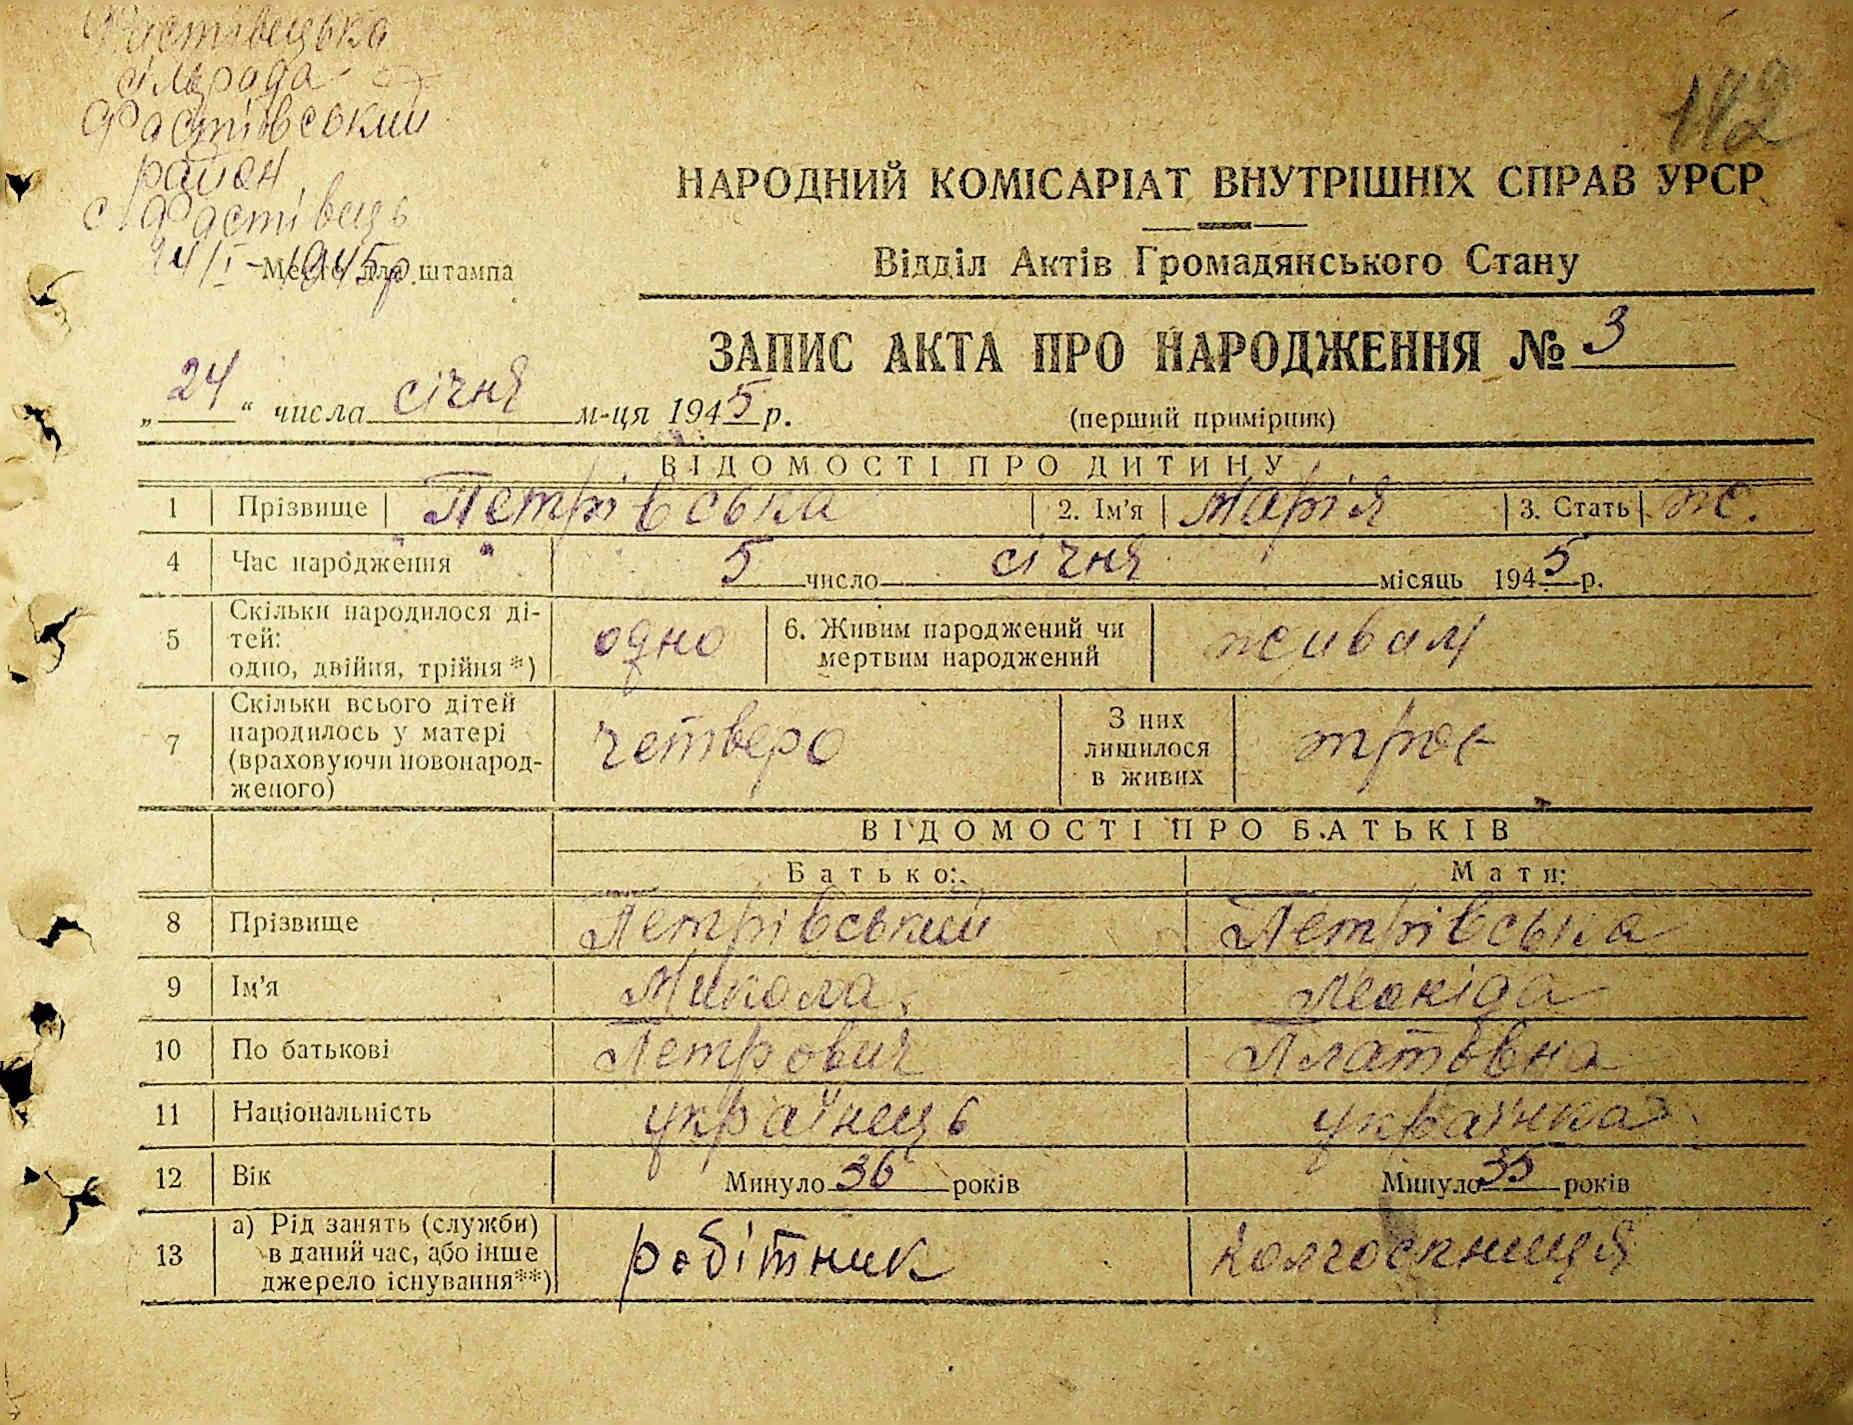 Фастівецька
сільрада
Фастівський
район
с. Фастівець
24/I - 1945р.
Место для штампа
182
НАРОДНИЙ КОМІСАРІАТ ВНУТРІШНІХ СПРАВ УРСР
Відділ Актів Громадянського Стану
ЗАПИС АКТА ПРО НАРОДЖЕННЯ № 3
„24“ числа січня м-ця 1945 р.
(перший примірник)
ВІДОМОСТІ ПРО ДИТИНУ
1 Прізвище Петрівська 2. Ім'я Марія 3. Стать ж.
4 Час народження 5 число січня місяць 1945 р.
5 Скільки народилося ді-
тей:
одно, двійня, трійня*) одно 6. Живим народжений чи
мертвим народжений живим
7 Скільки всього дітей
народилось у матері
(враховуючи новонарод-
женого) четверо З них
лишилося
в живих троє
ВІДОМОСТІ ПРО БАТЬКІВ
Батько: Мати:
8 Прізвище Петрівський Петрівська
9 Ім'я Микола Леокіда
10 По батькові Петрович Платовна
11 Національність українець українка
12 Вік Минуло 36 років Минуло 35 років
13 а) Рід занять (служби)
в даний час, або інше
джерело існування**) робітник колгоспниця